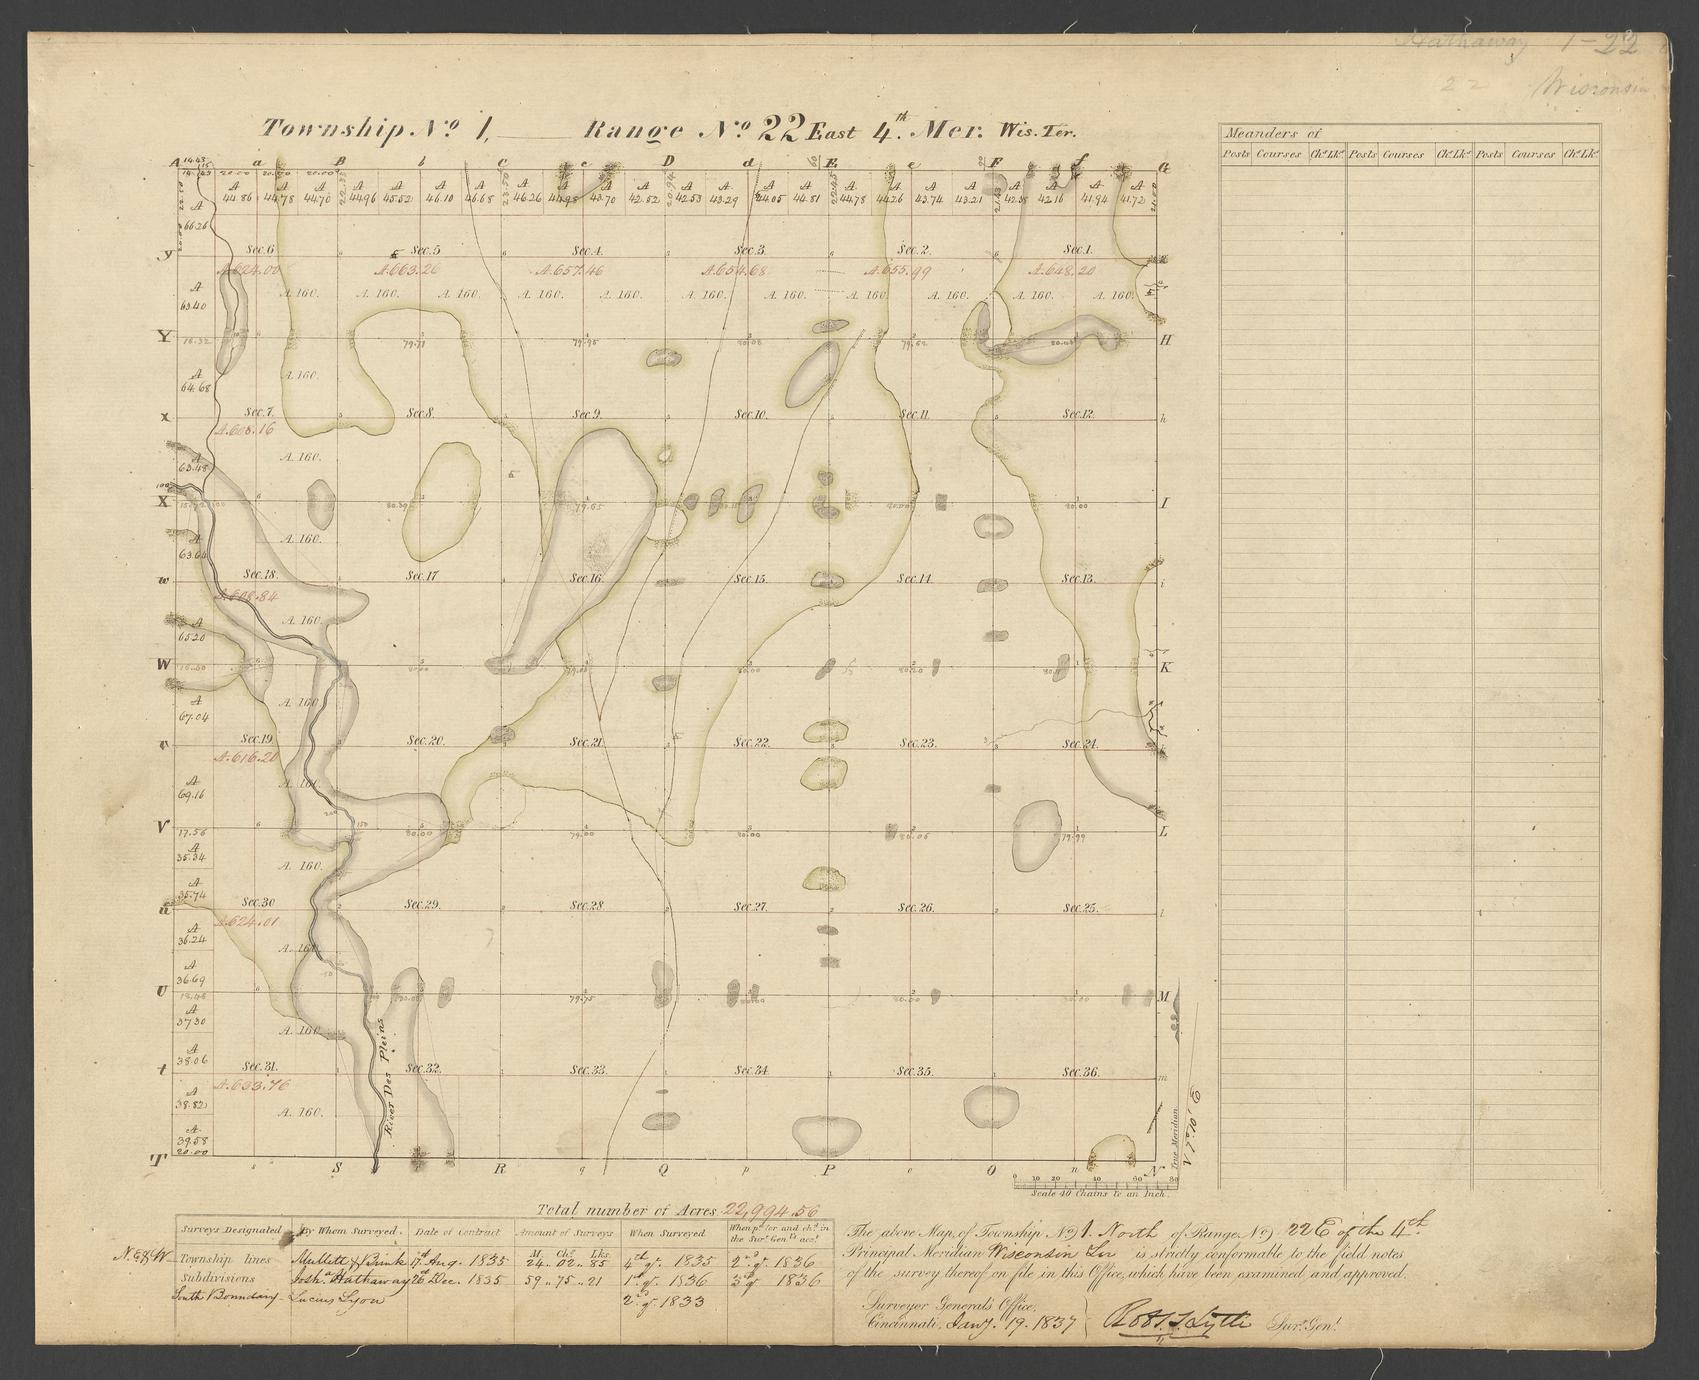 Hathaway 1-22
22 Wisconsin
Township No 1, Range No 22 East 4th Mer. Wis. Ter.
Meanders of
Posts Courses Chs Lks Posts Courses Chs Lks Posts Courses Chs Lks
A a B b C c D d E e F f G
14.43
20.00 20.00 20.00
A A A A A A A A A A A A A A A A A A A A A A
44.86 44.78 44.70 44.96 45.52 46.10 46.68 46.26 44.98 43.70 42.52 42.53 43.29 44.05 44.81 44.78 44.26 43.74 43.21 42.38 42.16 41.94 41.72
A
66.26
y Sec. 6 Sec. 5 Sec. 4. Sec. 3. Sec. 2. Sec. 1.
A. 624.00 A. 663.26 A. 657.46 A. 654.68 A. 655.99 A. 648.20
A
63.40
A. 160. A. 160. A. 160. A. 160. A. 160. A. 160. A. 160. A. 160. A. 160. A. 160. A. 160.
Y 16.32 79.71 79.95 80.08 79.62 H
A
64.68
A. 160.
x Sec. 7. Sec. 8. Sec. 9. Sec. 10. Sec. 11. Sec. 12. h
A. 608.16
A
63.48
A. 160.
X 79.65 80.00 I
A
63.64
A. 160.
w Sec. 18. Sec. 17 Sec. 16. Sec. 15. Sec. 14. Sec. 13. i
A. 608.84
A
65.20
A. 160
W 80.00 80.00 K
A
67.04
A. 160
v Sec. 19. Sec. 20. Sec. 21. Sec. 22. Sec. 23. Sec. 24. k
A. 616.20
A
69.16
A. 160.
V 17.56 80.00 79.00 80.00 80.06 79.99 L
A
35.34
A. 160.
A
35.74
u Sec. 30 Sec. 29. Sec. 28. Sec. 27. Sec. 26. Sec. 25. l
A. 624.01
A
36.24
A. 160
A
36.69
U 18.46 79.75 80.00 80.00 M
A
37.30
A. 160
A
38.06
t Sec. 31. Sec. 32. Sec. 33. Sec. 34. Sec. 35. Sec. 36. m
A. 633.76
A
38.82
A. 160.
A
39.58
20.00
River Des Pleins
True Meridian
T s S r R q Q p P o O n N
0 10 20 40 60 80
Scale 40 Chains to an Inch.
Total number of Acres. 22,994.56
Surveys Designated By Whom Surveyed. Date of Contract Amount of Surveys When Surveyed When pd for and chd in the Surr Genls acct
M. Chs Lks
N. E & W Township lines Mullett & Brink 17th Aug. 1835 24. 02. 85 4th qr. 1835 2nd qr. 1836
Subdivisions Josha Hathaway 26th Dec. 1835 59.. 75.. 21 1st qr. 1836 3d qr 1836
South Boundary - Lucius Lyon 2nd qr. 1833
The above Map, of Township No 1. North of Range No 22 E of the 4th
Principal Meridian Wisconsin Ter is strictly conformable to the field notes
of the survey thereof on file in this Office, which have been examined and approved.
Surveyor General's Office,
Cincinnati, Jany. 19. 1837 Robt. T. Lytle Surr. Genl.